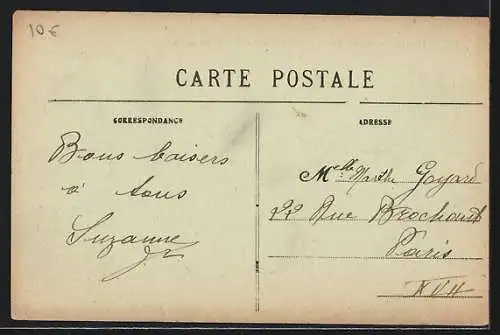 10€
CARTE POSTALE
CORRESPONDANCE
ADRESSE
Bons baisers
à tous
Suzanne
Melle Marthe Goyard
22 Rue Brochant
Paris
XVII